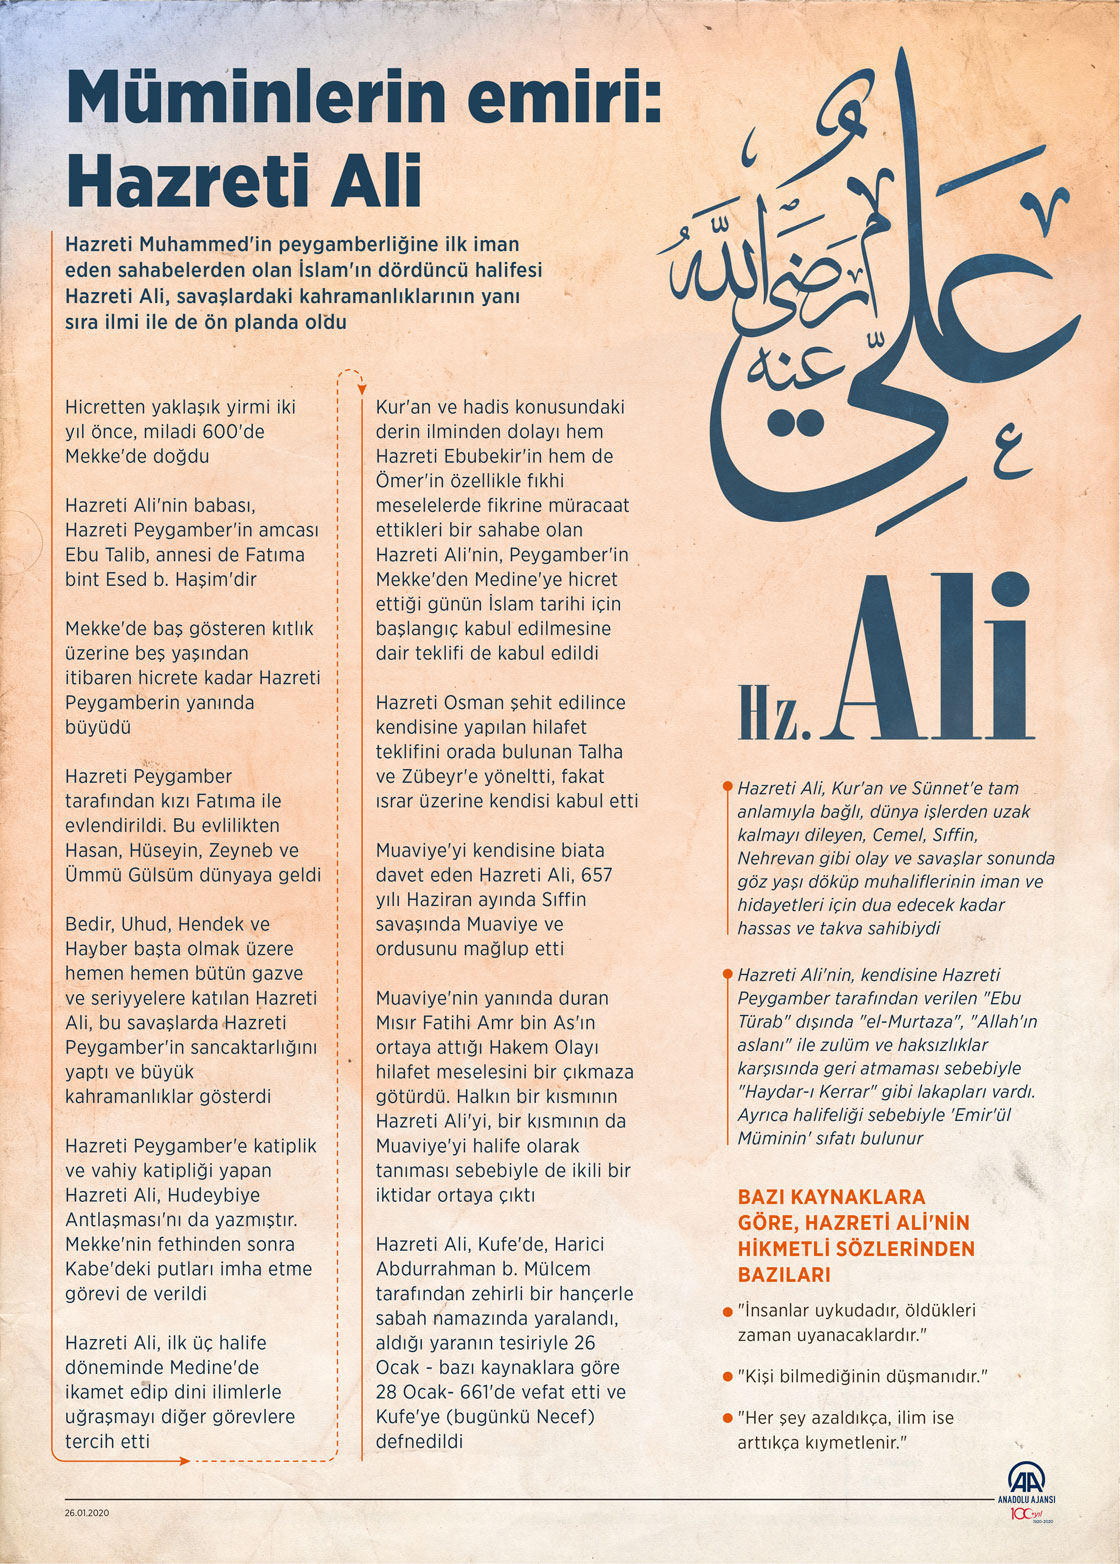 Müminlerin emiri:
Hazreti Ali
Hazreti Muhammed'in peygamberliğine ilk iman
eden sahabelerden olan İslam'ın dördüncü halifesi
Hazreti Ali, savaşlardaki kahramanlıklarının yanı
sıra ilmi ile de ön planda oldu
Hicretten yaklaşık yirmi iki
yıl önce, miladi 600'de
Mekke'de doğdu
Hazreti Ali'nin babası,
Hazreti Peygamber'in amcası
Ebu Talib, annesi de Fatıma
bint Esed b. Haşim'dir
Mekke'de baş gösteren kıtlık
üzerine beş yaşından
itibaren hicrete kadar Hazreti
Peygamberin yanında
büyüdü
Hazreti Peygamber
tarafından kızı Fatıma ile
evlendirildi. Bu evlilikten
Hasan, Hüseyin, Zeyneb ve
Ümmü Gülsüm dünyaya geldi
Bedir, Uhud, Hendek ve
Hayber başta olmak üzere
hemen hemen bütün gazve
ve seriyyelere katılan Hazreti
Ali, bu savaşlarda Hazreti
Peygamber'in sancaktarlığını
yaptı ve büyük
kahramanlıklar gösterdi
Hazreti Peygamber'e katiplik
ve vahiy katipliği yapan
Hazreti Ali, Hudeybiye
Antlaşması'nı da yazmıştır.
Mekke'nin fethinden sonra
Kabe'deki putları imha etme
görevi de verildi
Hazreti Ali, ilk üç halife
döneminde Medine'de
ikamet edip dini ilimlerle
uğraşmayı diğer görevlere
tercih etti
Kur'an ve hadis konusundaki
derin ilminden dolayı hem
Hazreti Ebubekir'in hem de
Ömer'in özellikle fıkhi
meselelerde fikrine müracaat
ettikleri bir sahabe olan
Hazreti Ali'nin, Peygamber'in
Mekke'den Medine'ye hicret
ettiği günün İslam tarihi için
başlangıç kabul edilmesine
dair teklifi de kabul edildi
Hazreti Osman şehit edilince
kendisine yapılan hilafet
teklifini orada bulunan Talha
ve Zübeyr'e yöneltti, fakat
ısrar üzerine kendisi kabul etti
Muaviye'yi kendisine biata
davet eden Hazreti Ali, 657
yılı Haziran ayında Sıffin
savaşında Muaviye ve
ordusunu mağlup etti
Muaviye'nin yanında duran
Mısır Fatihi Amr bin As'ın
ortaya attığı Hakem Olayı
hilafet meselesini bir çıkmaza
götürdü. Halkın bir kısmının
Hazreti Ali'yi, bir kısmının da
Muaviye'yi halife olarak
tanıması sebebiyle de ikili bir
iktidar ortaya çıktı
Hazreti Ali, Kufe'de, Harici
Abdurrahman b. Mülcem
tarafından zehirli bir hançerle
sabah namazında yaralandı,
aldığı yaranın tesiriyle 26
Ocak - bazı kaynaklara göre
28 Ocak- 661'de vefat etti ve
Kufe'ye (bugünkü Necef)
defnedildi
علي
رضي الله
عنه
Hz. Ali
Hazreti Ali, Kur'an ve Sünnet'e tam
anlamıyla bağlı, dünya işlerden uzak
kalmayı dileyen, Cemel, Sıffin,
Nehrevan gibi olay ve savaşlar sonunda
göz yaşı döküp muhaliflerinin iman ve
hidayetleri için dua edecek kadar
hassas ve takva sahibiydi
Hazreti Ali'nin, kendisine Hazreti
Peygamber tarafından verilen "Ebu
Türab" dışında "el-Murtaza", "Allah'ın
aslanı" ile zulüm ve haksızlıklar
karşısında geri atmaması sebebiyle
"Haydar-ı Kerrar" gibi lakapları vardı.
Ayrıca halifeliği sebebiyle 'Emir'ül
Müminin' sıfatı bulunur
BAZI KAYNAKLARA
GÖRE, HAZRETİ ALİ'NİN
HİKMETLİ SÖZLERİNDEN
BAZILARI
"İnsanlar uykudadır, öldükleri
zaman uyanacaklardır."
"Kişi bilmediğinin düşmanıdır."
"Her şey azaldıkça, ilim ise
arttıkça kıymetlenir."
26.01.2020
AA
ANADOLU AJANSI
100.yıl
1920-2020